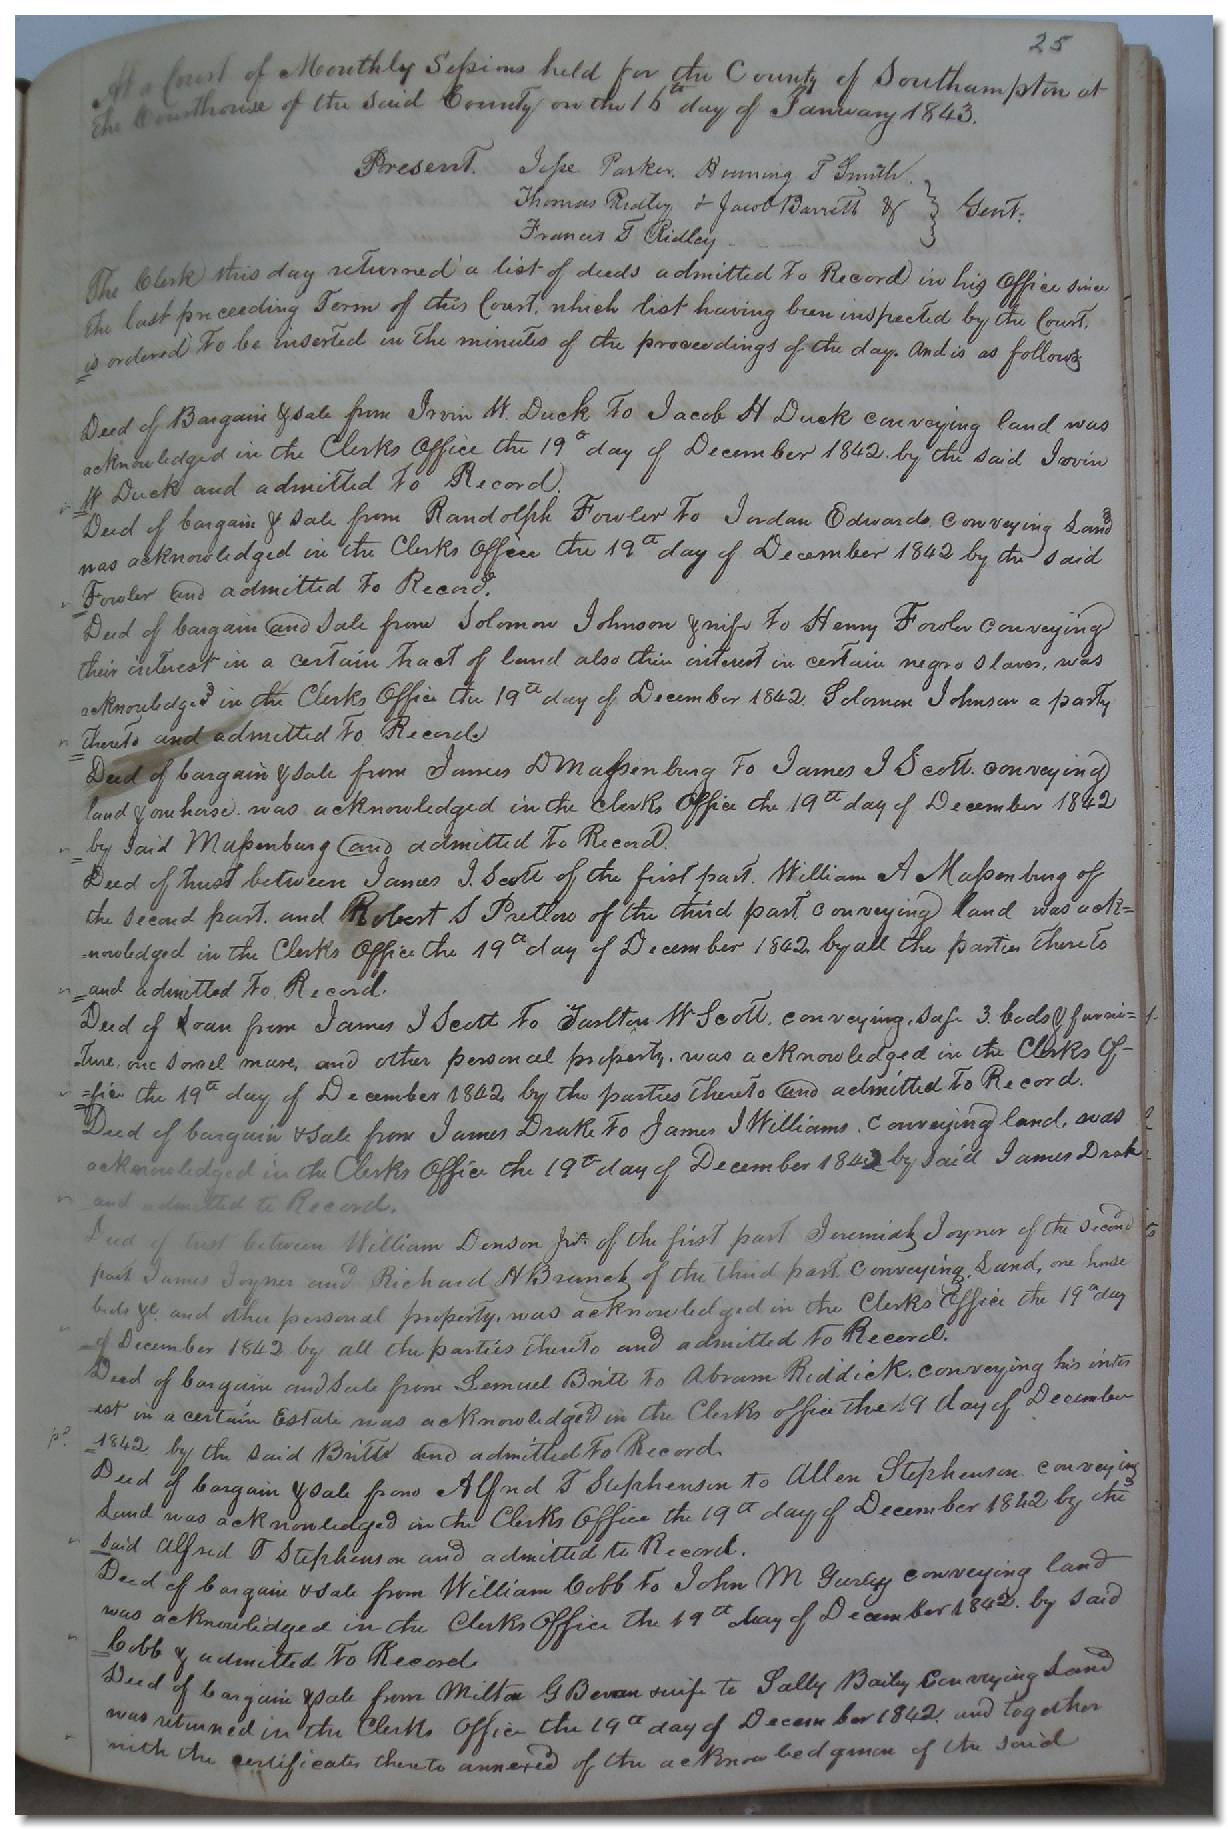 25
At a Court of Monthly Sessions held for the County of Southampton at
the Courthouse of the said County on the 16th day of January 1843.
Present. Jesse Parker. Henning T Smith.
Thomas Ridley & Jacob Barrett & } Gent:
Francis T Ridley
The Clerk this day returned a list of deeds admitted to Record in his Office since
the last preceeding Term of this Court, which list having been inspected by the Court.
is ordered to be inserted in the minutes of the proceedings of the day. And is as follows
Deed of Bargain & sale from Irvin W. Duck to Jacob H Duck conveying land was
acknowledged in the Clerks Office the 19th day of December 1842. by the said Irvin
W Duck and admitted to Record.
Deed of bargain & sale from Randolph Fowler to Jordan Edwards, conveying Land
was acknowledged in the Clerks Office the 19th day of December 1842 by the said
Fowler and admitted to Record.
Deed of bargain and sale from Solomon Johnson & wife to Henry Fowler conveying
their interest in a certain tract of land also their interest in certain negro slaves, was
acknowledged in the Clerks Office the 19th day of December 1842. Solomon Johnson a party
thereto and admitted to Record
Deed of bargain & sale from James D Massenburg to James J Scott. conveying
land & one horse. was acknowledged in the Clerks Office the 19th day of December 1842
by said Massenburg and admitted to Record.
Deed of trust between James J. Scott of the first part. William A Massenburg of
the second part. and Robert S Pretlow of the third part conveying land was ack=
-nowledged in the Clerks Office the 19th day of December 1842 by all the parties thereto
and admitted to Record.
Deed of Loan from James J Scott to Tarlton W Scott. conveying, 3 beds & furni=
ture, one sorrel mare, and other personal property. was acknowledged in the Clerks Of-
=fice the 19th day of December 1842 by the parties thereto and admitted to Record.
Deed of bargain & sale from James Drake to James J Williams. conveying land, was
acknowledged in the Clerks Office the 19th day of December 1842 by said James Drak
and admitted to Record.
Deed of trust between William Denson Jnr. of the first part Jeremiah Joyner of the second
part James Joyner and Richard H Branch of the third part conveying Land, one horse
beds &c. and other personal property, was acknowledged in the Clerks Office the 19th day
of December 1842 by all the parties thereto and admitted to Record.
Deed of bargain and sale from Lemuel Britt to Abram Riddick. conveying his inter
-est in a certain Estate was acknowledged in the Clerks office the 19 day of December
1842. by the said Britt and admitted to Record.
Deed of bargain & sale from Alfred T Stephenson to Allen Stephenson conveying
Land was acknowledged in the Clerks Office the 19th day of December 1842 by the
said Alfred T Stephenson and admitted to Record.
Deed of bargain & sale from William Cobb to John M Gurley conveying land
was acknowledged in the Clerks Office the 19th day of December 1842. by said
Cobb & admitted to Record
Deed of bargain & sale from Milton G Bevan & wife to Sally Baily conveying Land
was returned in the Clerks Office the 19th day of December 1842. and together
with the certificates thereto annexed of the acknowledgment of the said